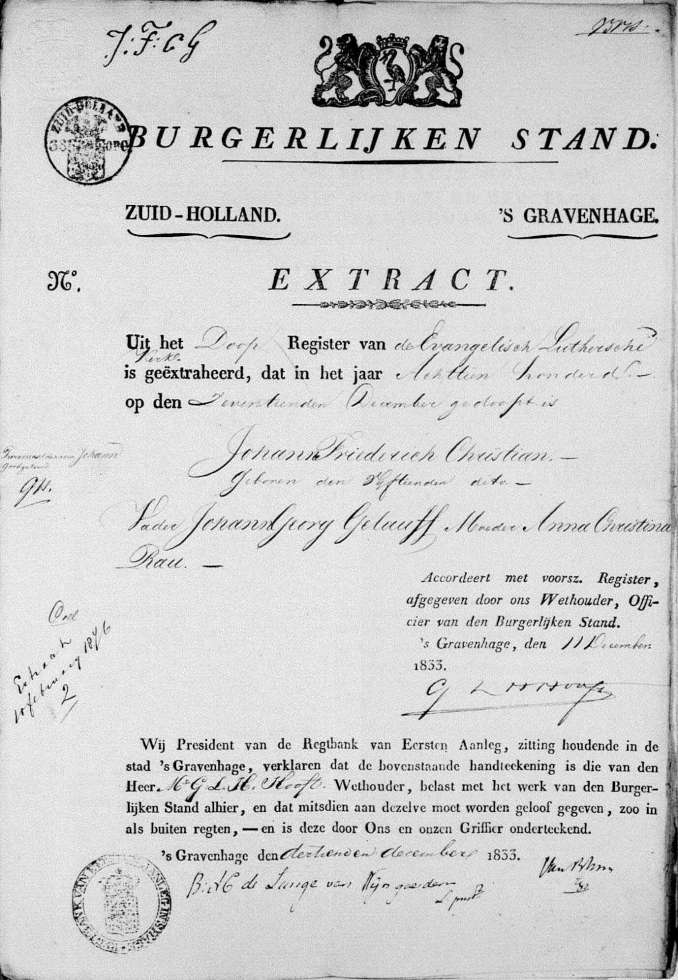 J: F: C G
BURGERLIJKEN STAND.
ZUID-HOLLAND
ZUID-HOLLAND. 'S GRAVENHAGE.
N°. EXTRACT.
Uit het Doop Register van de Evangelisch Luthersche
Kerk
is geëxtraheerd, dat in het jaar Achttien honderd –
op den Zeventienden December gedoopt is
Johann Friederich Christian. –
Geboren den Vyftienden dito –
Johann
goedgekeurd
Vader Johann Georg Gelauff Moeder Anna Christina
Rau. –
Accordeert met voorsz. Register,
afgegeven door ons Wethouder, Offi-
cier van den Burgerlijken Stand.
's Gravenhage, den 11 December
1833.
Extract
februarij 1876
2
Wij President van de Regtbank van Eersten Aanleg, zitting houdende in de
stad 's Gravenhage, verklaren dat de bovenstaande handteekening is die van den
Heer Mr G L H Hooft. Wethouder, belast met het werk van den Burger-
lijken Stand alhier, en dat mitsdien aan dezelve moet worden geloof gegeven, zoo in
als buiten regten, — en is deze door Ons en onzen Griffier onderteekend.
's Gravenhage den dertienden december 1833.
de Lange van Wyngaerden